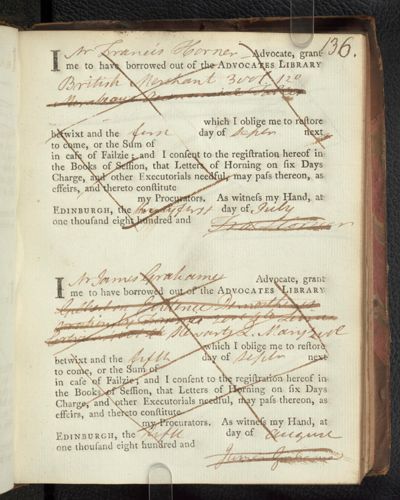 136.
I Mr Francis Horner Advocate, grant
me to have borrowed out of the ADVOCATES LIBRARY
British Merchant 3 vol. 120
which I oblige me to restore
betwixt and the first day of Septr next
to come, or the Sum of
in case of Failzie; and I consent to the registration hereof in
the Books of Session, that Letters of Horning on six Days
Charge, and other Executorials needful, may pass thereon, as
effeirs, and thereto constitute
my Procurators. As witness my Hand, at
EDINBURGH, the thirty first day of July
one thousand eight hundred and
Fra. Horner
I Mr James Grahame Advocate, grant
me to have borrowed out of the ADVOCATES LIBRARY
Gilbert on Evidence
Stewarts
which I oblige me to restore
betwixt and the fifth day of Septr next
to come, or the Sum of
in case of Failzie; and I consent to the registration hereof in
the Books of Session, that Letters of Horning on six Days
Charge, and other Executorials needful, may pass thereon, as
effeirs, and thereto constitute
my Procurators. As witness my Hand, at
EDINBURGH, the fifth day of August
one thousand eight hundred and
James Grahame